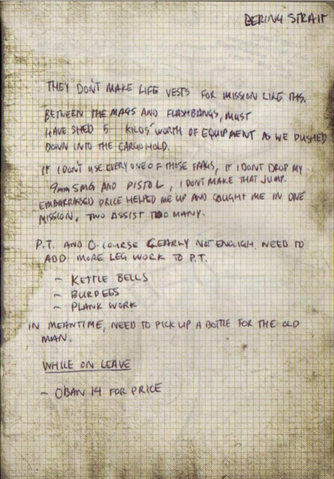 BERING STRAIT
THEY DON'T MAKE LIFE VESTS FOR MISSION LIKE THIS.
BETWEEN THE MAGS AND FLASHBANGS, MUST
HAVE SHED 5 KILOS' WORTH OF EQUIPMENT AS WE PUSHED
DOWN INTO THE CARGO HOLD.
IF I DON'T USE EVERY ONE OF THESE FRAGS, IF I DONT DROP MY
9MM SMG AND PISTOL, I DONT MAKE THAT JUMP.
EMBARRASSED PRICE HELPED ME UP AND CAUGHT ME IN ONE
MISSION, TWO ASSIST TOO MANY.
P.T. AND O-COURSE CLEARLY NOT ENOUGH. NEED TO
ADD MORE LEG WORK TO P.T.
- KETTLE BELLS
- BURPEES
- PLANK WORK
IN MEANTIME, NEED TO PICK UP A BOTTLE FOR THE OLD
MAN.
WHILE ON LEAVE
- OBAN 14 FOR PRICE